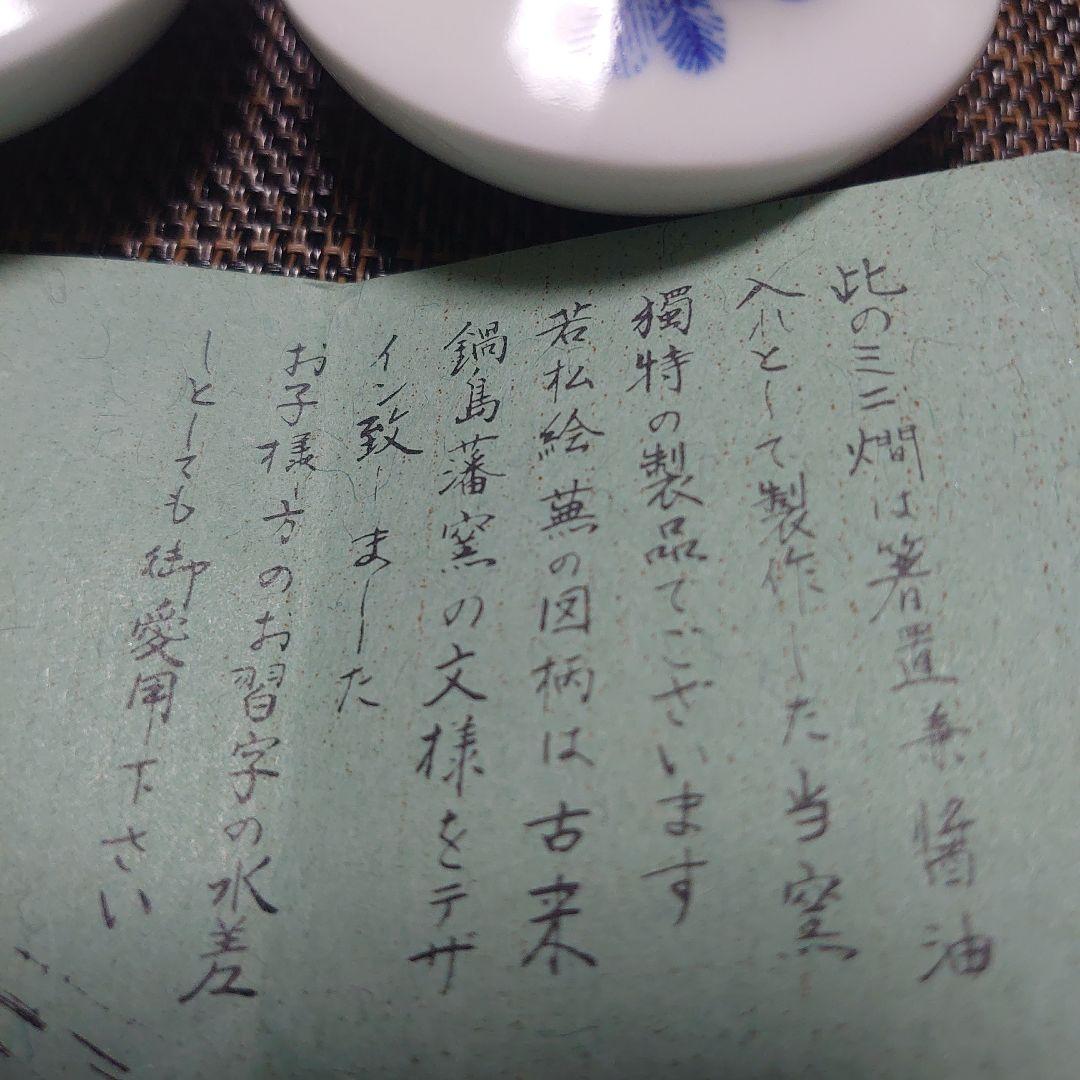 此の三ニ燗は箸置兼醤油
入れとして製作した当窯
獨特の製品でございます
若松絵蕪の図柄は古来
鍋島藩窯の文様をデザ
イン致しました
お子様方のお習字の水差
しとしても御愛用下さい